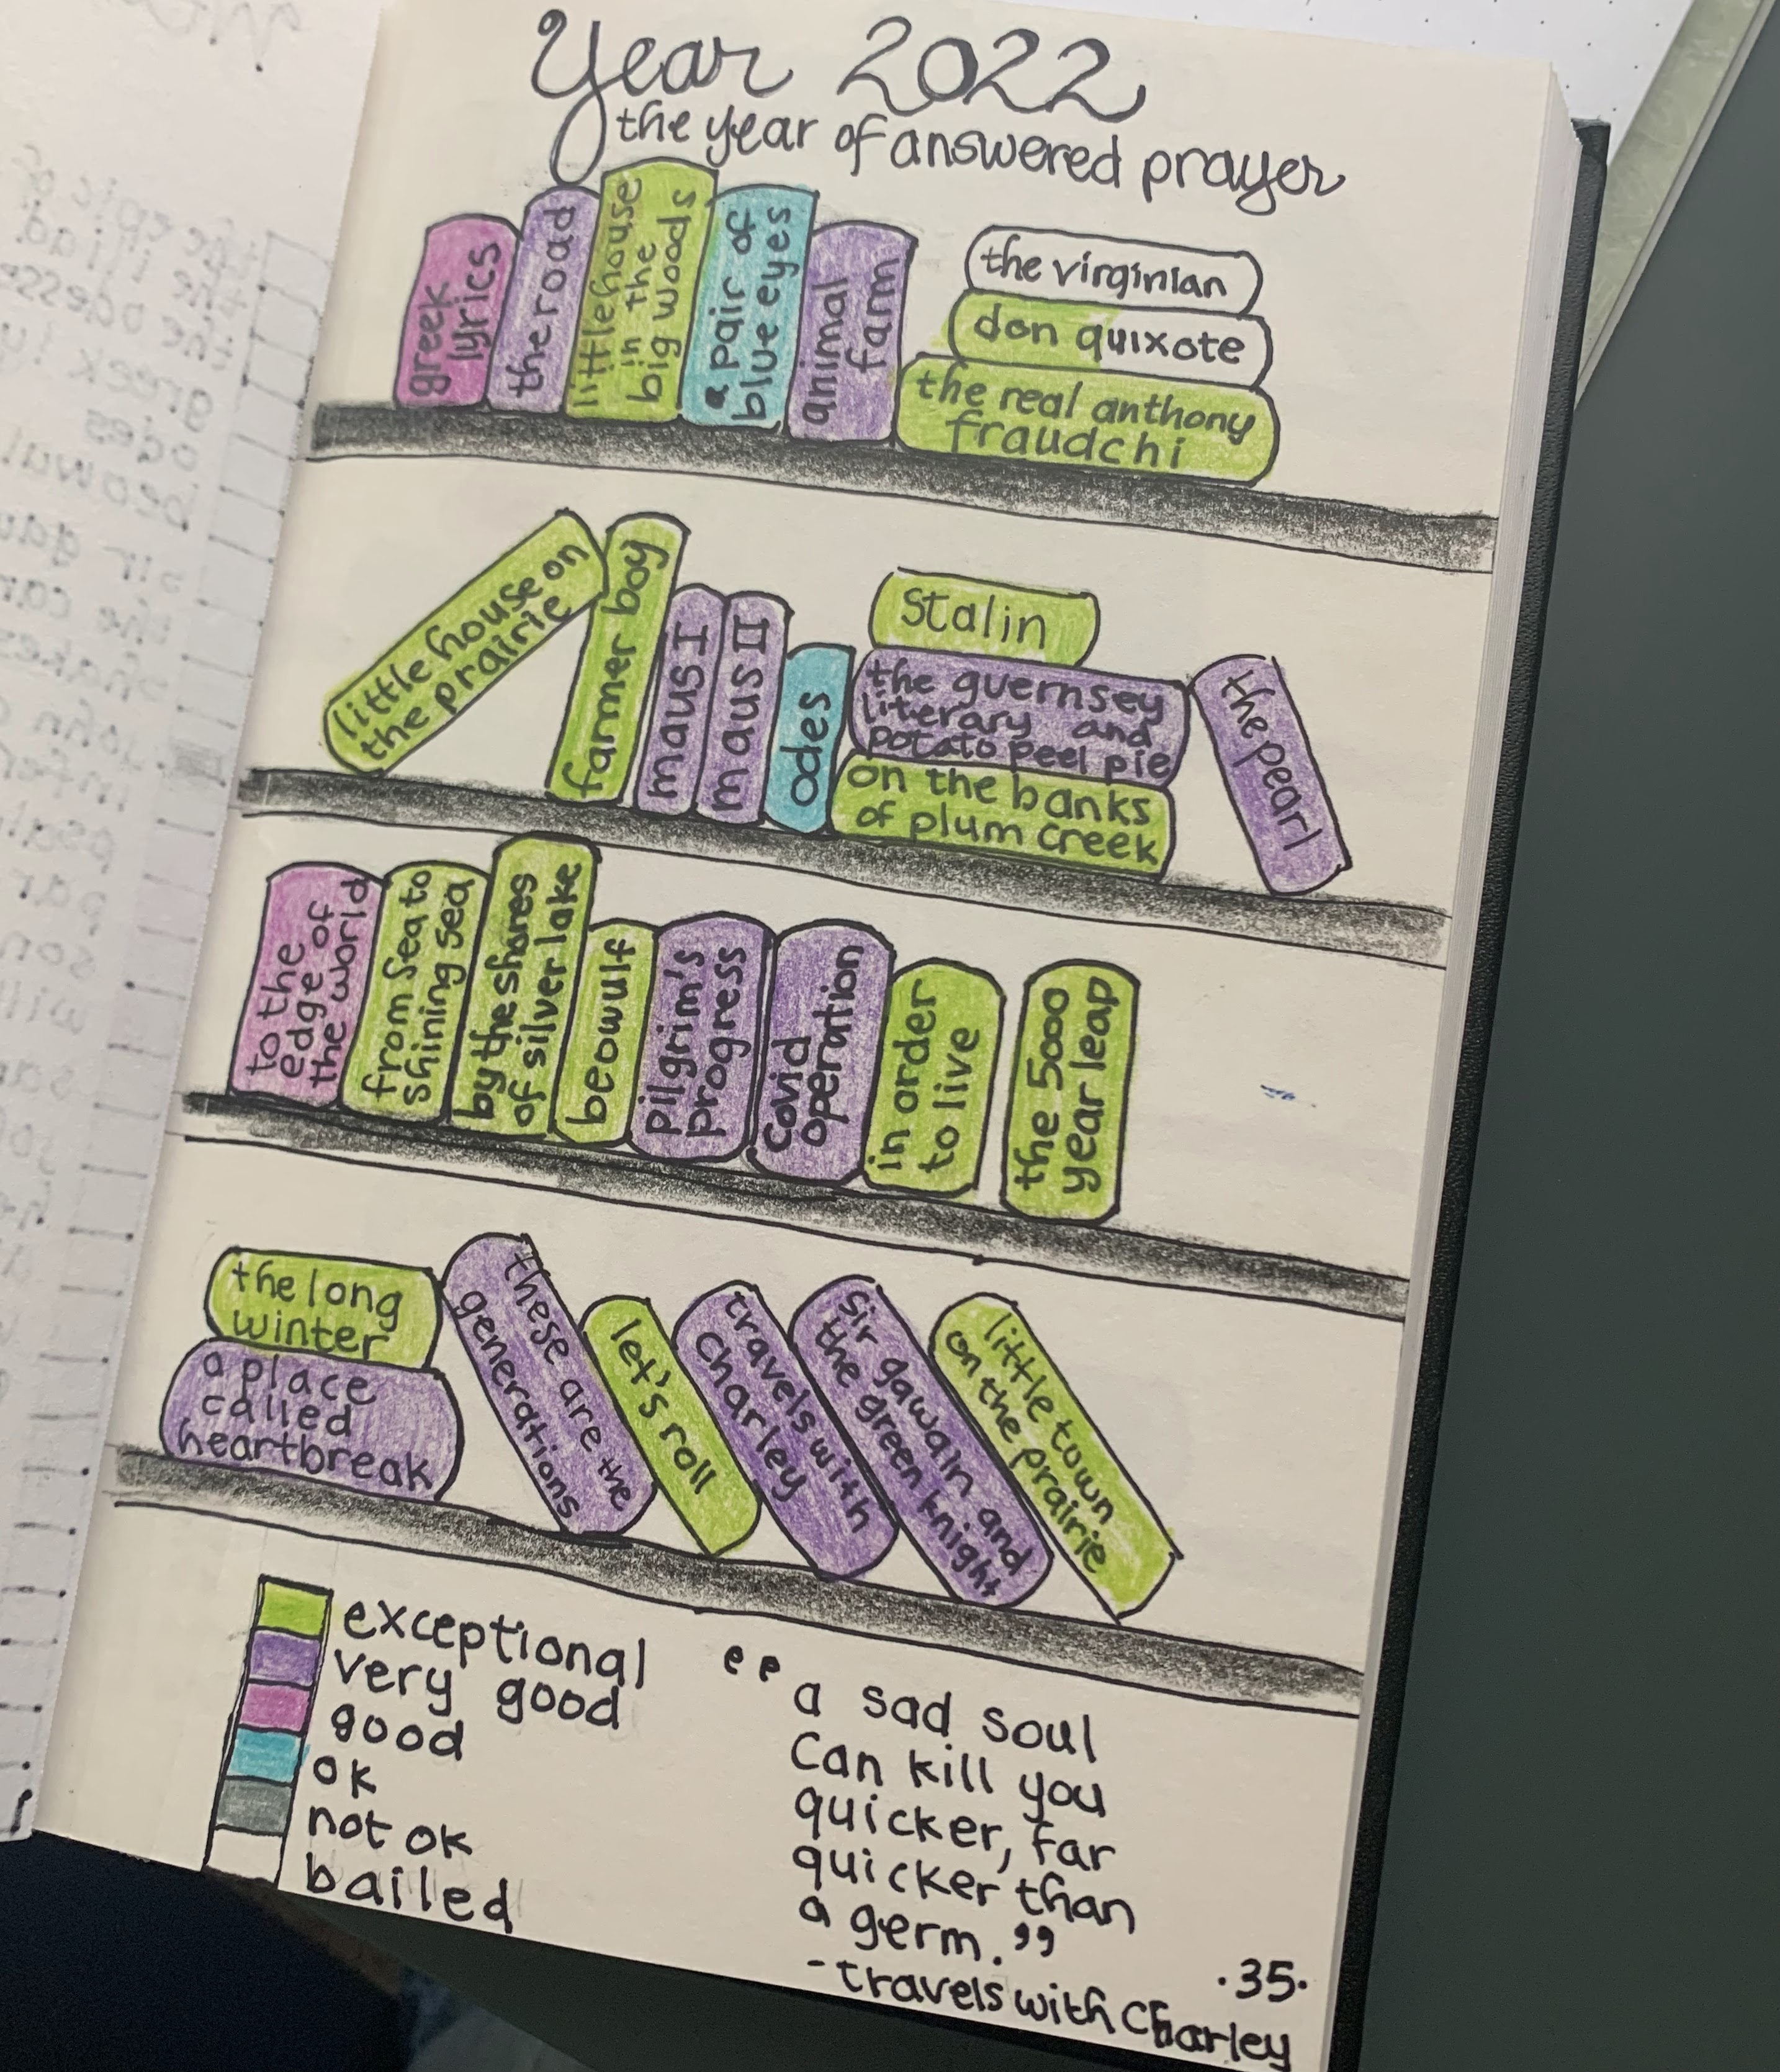 Year 2022
the year of answered prayer
greek
lyrics
the road
little house
in the
big woods
a pair of
blue eyes
animal
farm
the virginian
don quixote
the real anthony
fraudchi
little house on
the prairie
farmer boy
maus I
maus II
odes
Stalin
the guernsey
literary and
potato peel pie
on the banks
of plum creek
the pearl
to the
edge of
the world
from sea to
shining sea
by the shores
of silver lake
beowulf
pilgrim's
progress
covid
operation
in order
to live
the 5000
year leap
the long
winter
a place
called
heartbreak
these are the
generations
let's roll
travels with
charley
Sir gawain and
the green knight
little town
on the prairie
exceptional
very good
good
ok
not ok
bailed
“a sad soul
Can kill you
quicker, far
quicker than
a germ.”
-travels with Charley
·35·